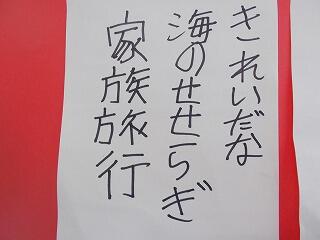 きれいだな
海のせせらぎ
家族旅行